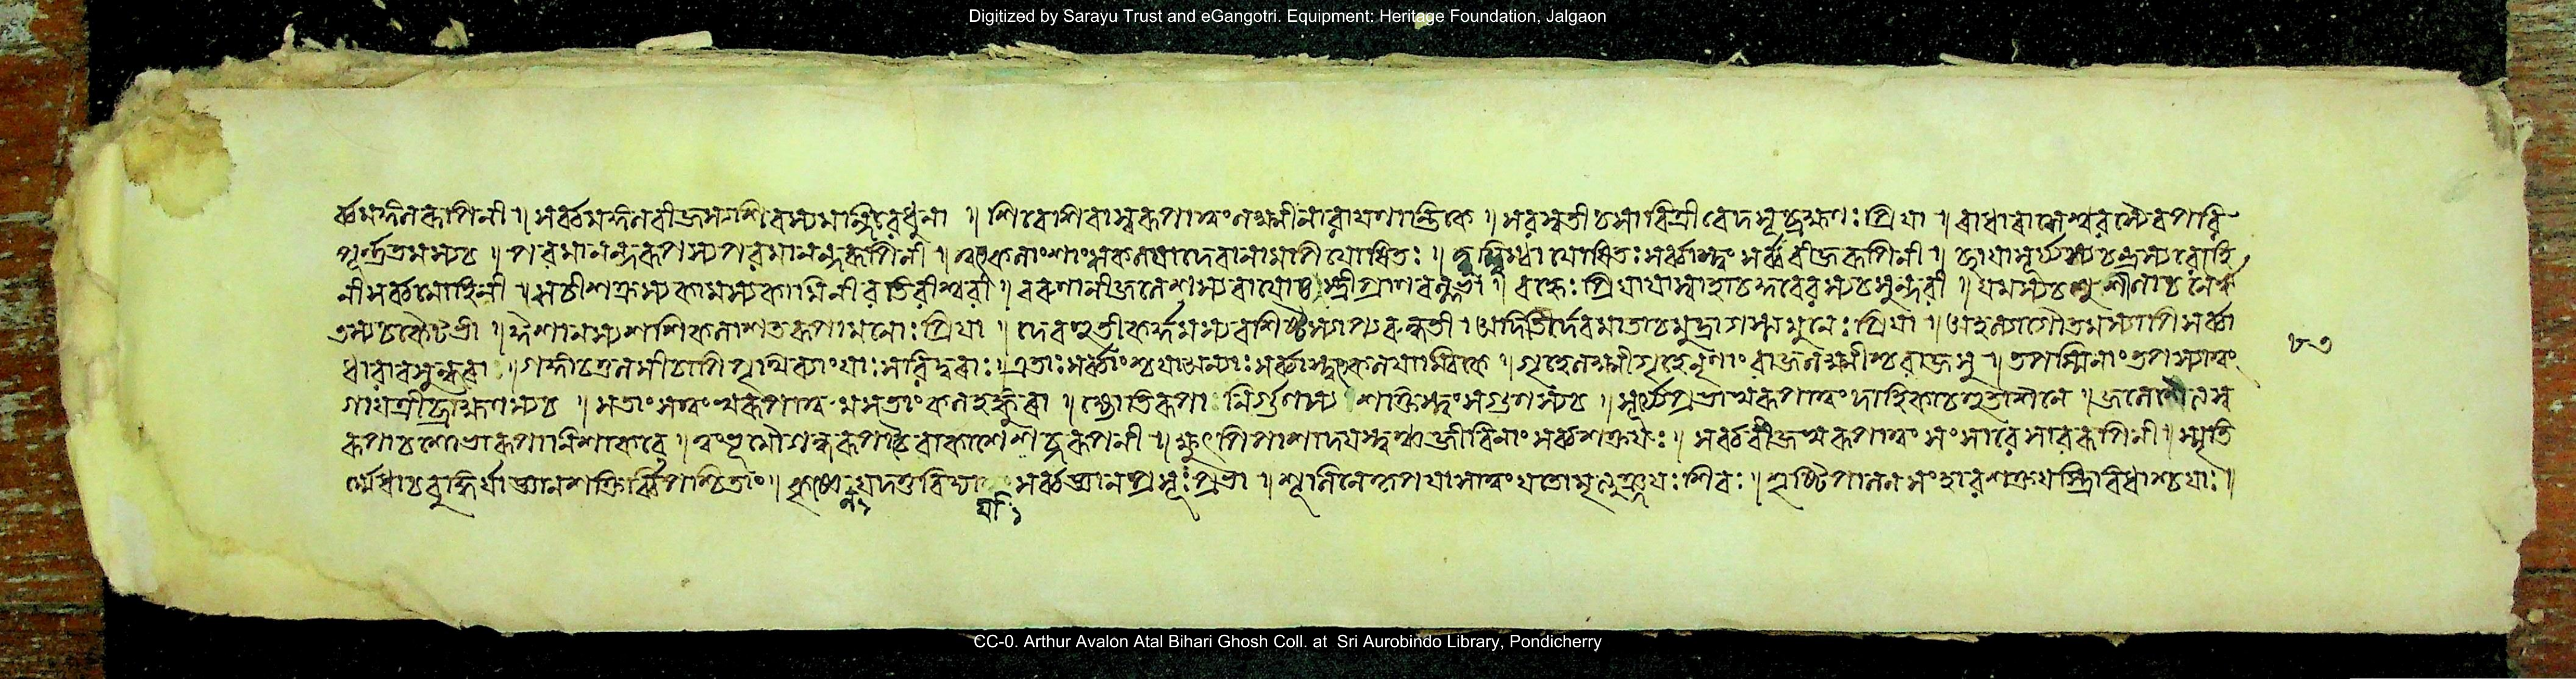 Digitized by Sarayu Trust and eGangotri. Equipment: Heritage Foundation, Jalgaon
র্ব্বমঙ্গল রূপিনী ॥ সর্ব্বমঙ্গল বীজস্য শিবস্য ॥ শিবো শিবাস্বরূপা ত্বং লক্ষ্মীর্নারায়ণান্তিকে ॥ সরস্বতী চ সাবিত্রী বেদসূর্ব্রহ্মণঃ প্রিয়া ॥ রাধা রাসেশ্বরস্যৈব পরি
পূর্ণতমস্য চ ॥ পরমানন্দরূপস্য পরমানন্দরূপিনী ॥ দেবানামপি যোষিতঃ ॥ যোষিতঃ সর্ব্বাস্ত্বং সর্ব্ববীজরূপিনী ॥ ছায়া সূর্য্যস্য চন্দ্রস্য রোহি
নী সর্ব্বমোহিনী ॥ শচী শক্রস্য কামস্য কামিনী রতিরীশ্বরী ॥ বরুণানী জলেশস্য বায়োঃ স্ত্রী প্রাণবল্লভা ॥ বহ্নেঃ প্রিয়া স্বাহা চ কুবেরস্য চ সুন্দরী ॥ যমস্য চ সুশীলা চ নৈর্ঋ
তস্য চ কৈটভী ॥ শশিকলা শতরূপা মনোঃ প্রিয়া ॥ দেবহূতী কর্দ্দমস্য বশিষ্ঠস্যাপ্যরুন্ধতী । অদিতির্দেবমাতা চ মুনেঃ প্রিয়া ॥ অহল্যা গৌতমস্যাপি সর্ব্বা
ধারা বসুন্ধরা ॥ গঙ্গা চ তুলসী চাপি পৃথিব্যাং যাঃ সরিদ্বরাঃ ॥ এতাঃ সর্ব্বাশ্চ যা অন্যাঃ সর্ব্বাস্ত্বৎকলয়াম্বিকে ॥ গৃহলক্ষ্মী গৃহে নৃণাং রাজলক্ষ্মীশ্চ রাজসু ॥ তপস্বিনাং তপস্যা ত্বং
গায়ত্রী ব্রাহ্মণস্য চ ॥ সতাং সত্ত্বস্বরূপা ত্বমসতাং কলহাঙ্কুরা ॥ জ্যোতিরূপা নির্গুণস্য শক্তিস্ত্বং সগুণস্য চ ॥ সূর্য্যে প্রভাস্বরূপা ত্বং দাহিকা চ হুতাশনে ॥ জলে শৈত্যস্ব
রূপা চ শোভারূপা নিশাকরে ॥ ত্বং ভূমৌ গন্ধরূপা চৈবাকাশে শব্দরূপিনী ॥ ক্ষুৎপিপাসাদয়স্ত্বঞ্চ জীবিনাং সর্ব্বশক্তয়ঃ ॥ সর্ব্ববীজস্বরূপা ত্বং সংসারে সাররূপিনী ॥ স্মৃতি
র্মেধা চ বুদ্ধির্বা জ্ঞানশক্তির্বিপশ্চিতাং ॥ সর্ব্বজ্ঞানপ্রসূঃ প্রভা ॥ শূলিনে কৃপয়া সা ত্বং যতো মৃত্যুঞ্জয়ঃ শিবঃ ॥ সৃষ্টিপালনসংহারশক্তয়স্ত্রিবিধাশ্চ যাঃ ॥
৮৩
CC-0. Arthur Avalon Atal Bihari Ghosh Coll. at Sri Aurobindo Library, Pondicherry